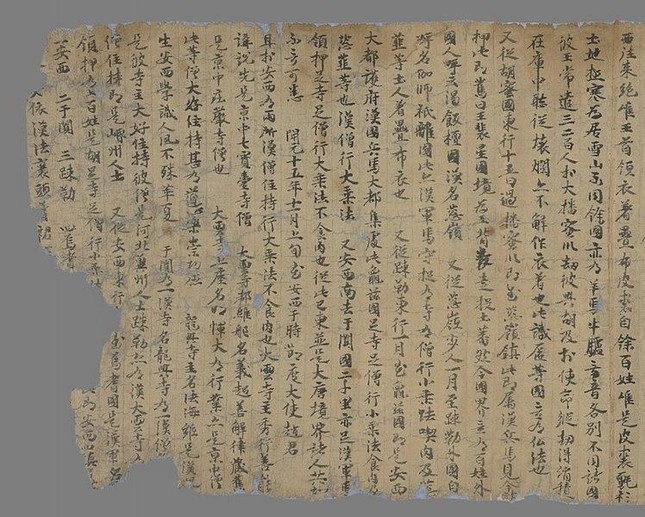 西往來絕唯王首領衣著疊布皮裘自餘百姓唯是皮裘氈衫
土地極寒為居雪山不同餘國亦有羊馬牛驢言音各別不同諸國
彼王常遣三二百人於大播蜜川劫彼興胡及於使命縱劫得絹積
在庫中聽從壞爛亦不解作衣著也此識匿等國无有仏法也
又從胡蜜國東行十五日過播蜜川即至葱嶺鎮此即屬漢兵馬見今
押此即舊日王裴星國境為王背叛走投土蕃然今國界无有百姓外
國人呼云渴飯檀國漢名葱嶺 又從葱嶺步入一月至疎勒外國自
呼名伽師祇離國此亦漢軍馬守捉有寺有僧行小乘法喫肉及葱
韮等土人著疊布衣也 又從疎勒東行一月至龜茲國即是安西
大都護府漢國兵馬大都集處此龜茲國足寺足僧行小乘法食肉及
葱韮等也漢僧行大乘法 又安西南去于闐國二千里亦足漢軍馬
領押足寺足僧行大乘法不食肉也從此已東並是大唐境界諸人共知
不言可悉 開元十五年十一月上旬至安西于時節度大使趙君
且於安西有兩所漢僧住持行大乘法不食肉也大雲寺主秀行善能
講說先是京中七寶臺寺僧 大雲寺都維那名義超善解律藏舊
是京中莊嚴寺僧也 大雲寺上座名明惲大有行業亦是京中僧
此等僧大好住持甚有道心樂崇功德 龍興寺主名法海雖是漢兒
生安西學識人風不殊華夏 于闐有一漢寺名龍興寺有一漢僧
是彼寺主大好住持彼僧是河北冀州人士疎勒亦有漢大雲寺
僧住持即是岷州人士 又從安西東行 至焉耆國是漢軍兵
領押有王百姓是胡足寺足僧行小乘 即安西四鎮
一安西 二于闐 三疎勒 四焉耆
依漢法裹頭著裙